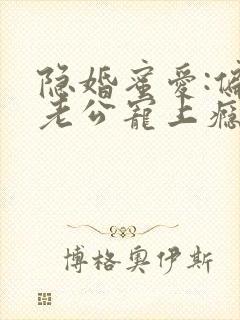 隐婚蜜爱:偏
老公宠上瘾
博格奥伊斯